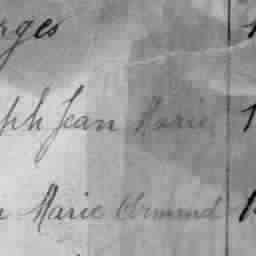 rges
ph Jean Marie 1
n Marie Armand 1